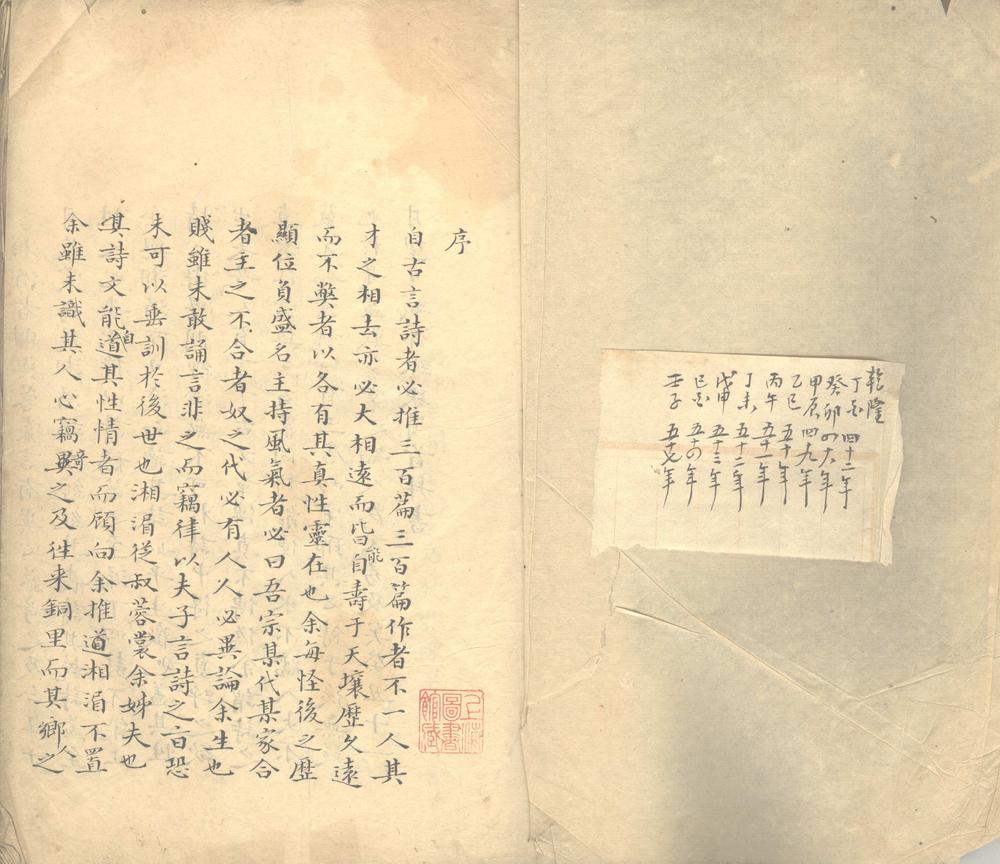 乾隆
丁酉 四十二年
癸卯 四十八年
甲辰 四十九年
乙巳 五十年
丙午 五十一年
丁未 五十二年
戊申 五十三年
己酉 五十四年
壬子 五十七年
序
自古言詩者必推三百篇三百篇作者不一人其
才之相去亦必大相遠而皆能自壽于天壤歷久遠
而不獘者以各有其真性靈在也余每怪後之歷
顯位負盛名主持風氣者必曰吾宗某代某家合
者主之不合者奴之代必有人人必異論余生也
賤雖未敢誦言非之而竊律以夫子言詩之旨恐
未可以垂訓於後世也湘湄從叔蓉裳余姊夫也
其詩文能自道其性情者而顧向余推道湘湄不置
余雖未識其人心竊異之及徃来銅里而其鄉人之
上海圖書館藏